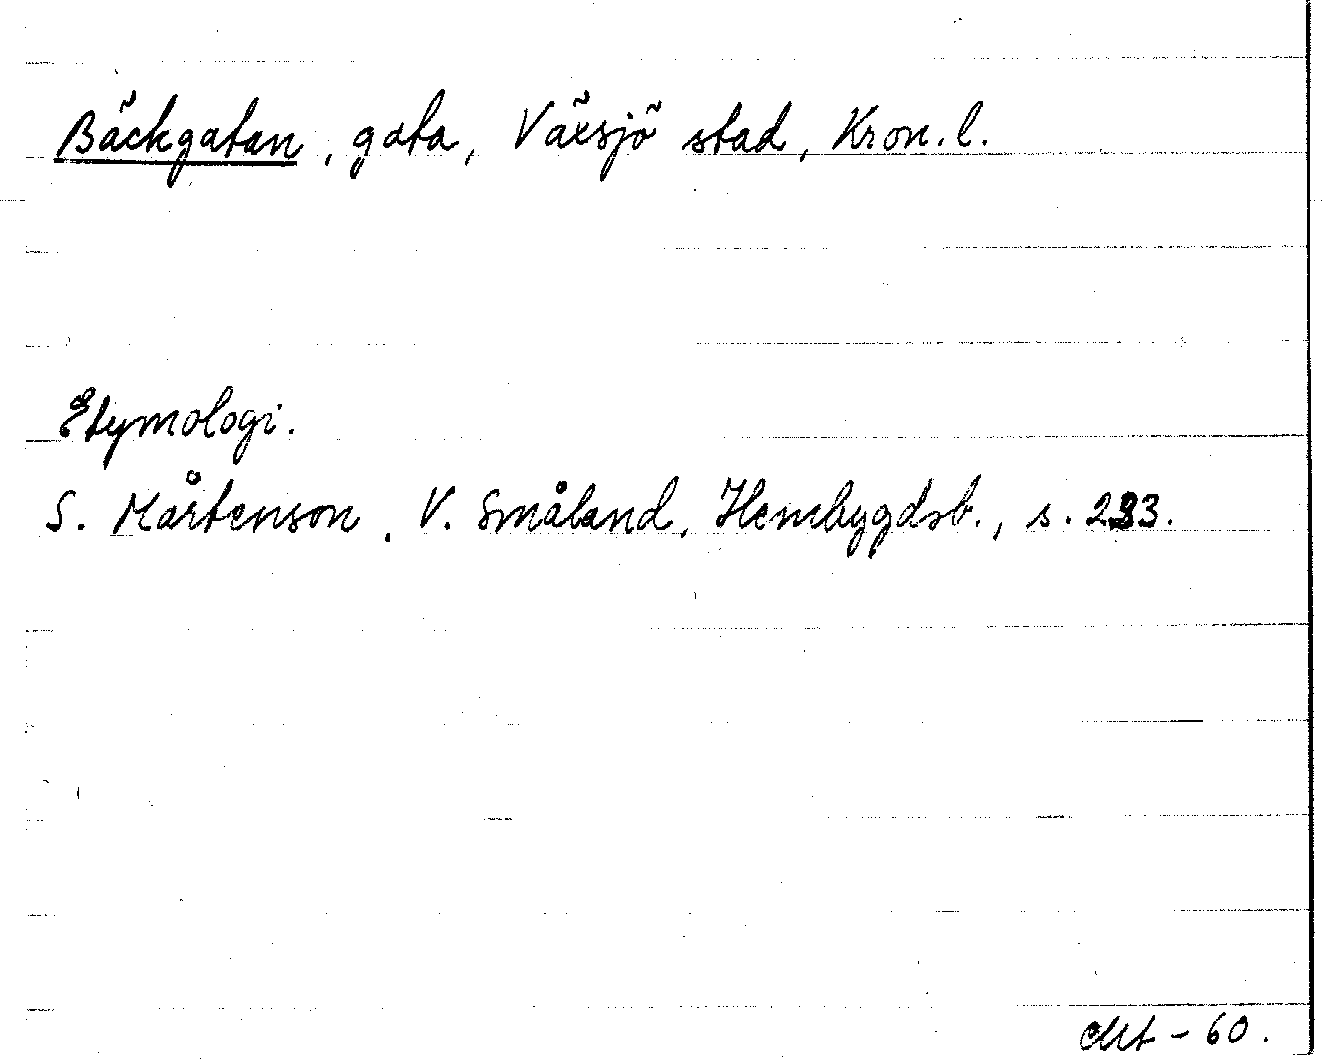 Bäckgatan, gata, Växsjö stad, Kron. l.
Etymologi.
S. Mårtenson, V. Småland, Hembygdsb., s. 233.
- 60.